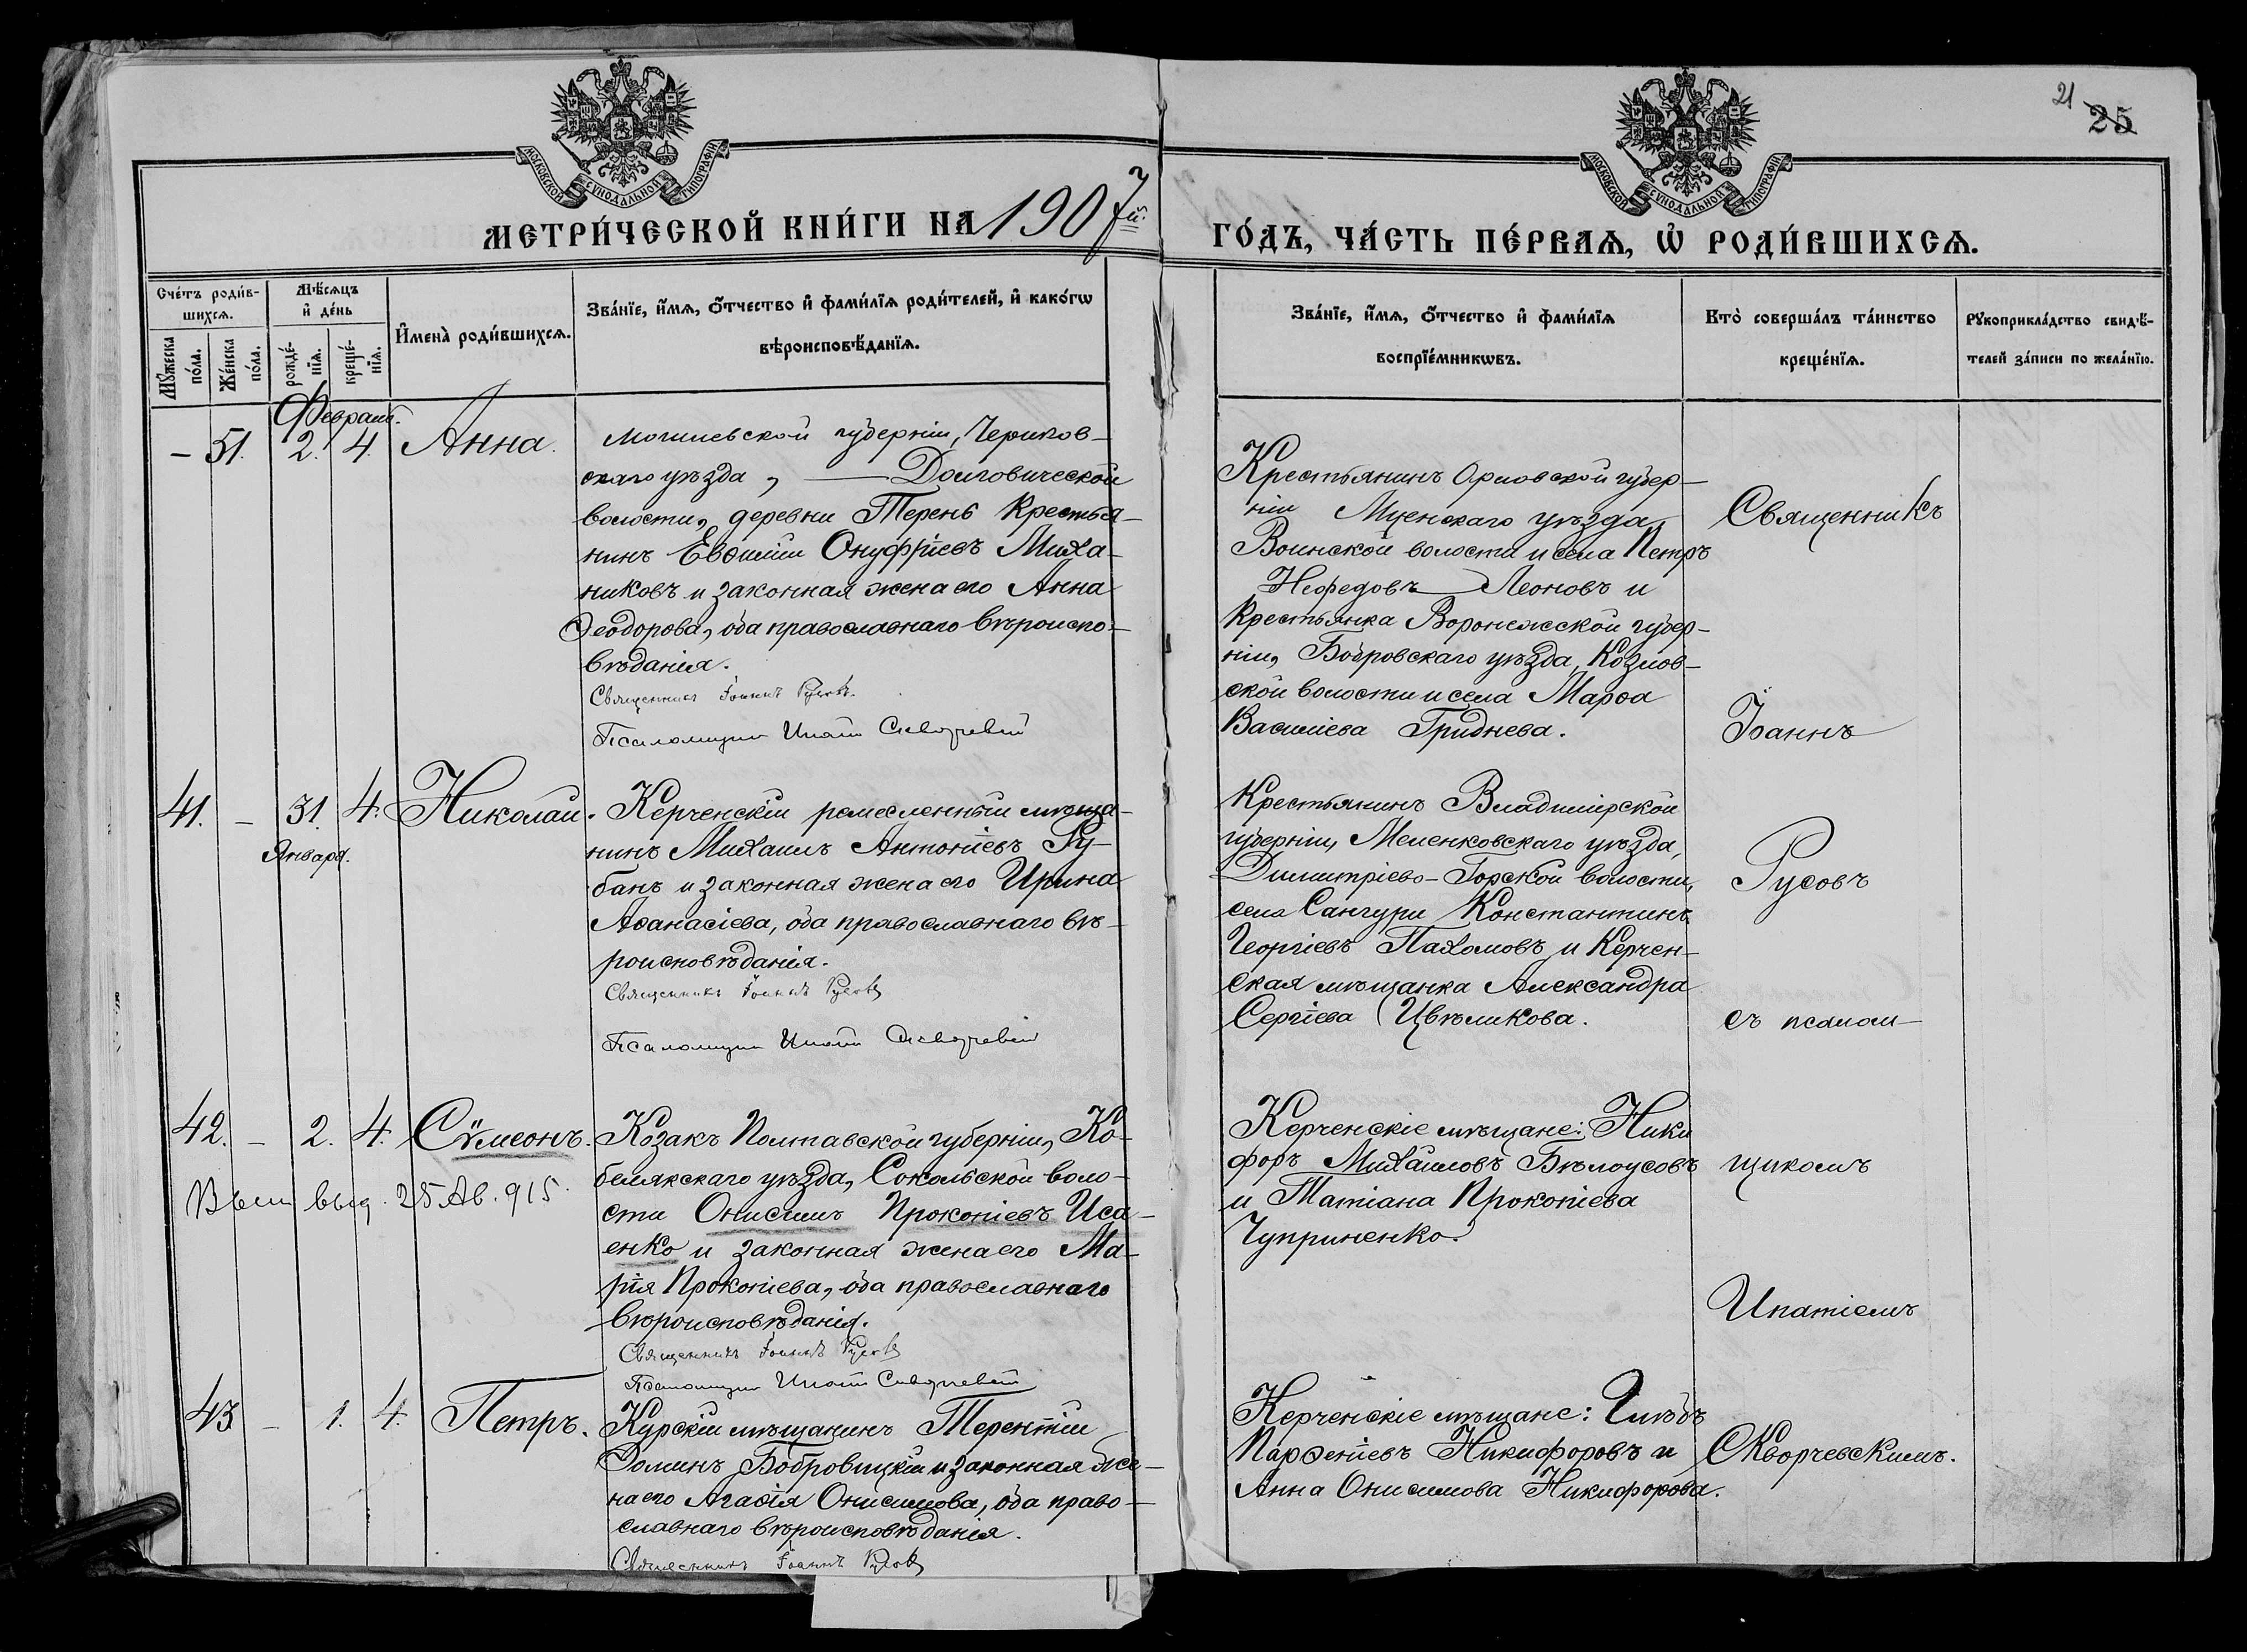 21
25
МОСКОВСКОЙ СѴНОДАЛЬНОЙ ТИПОГРАФІИ
МОСКОВСКОЙ СѴНОДАЛЬНОЙ ТИПОГРАФІИ
МЕТРИ́ЧЕСКОЙ КНИ́ГИ НА 1907й.
ГО́ДЪ, ЧА́СТЬ ПЕ́РВАѦ, Ѽ РОДИ́ВШИХСѦ.
Сче́тъ роди́в-
шихсѧ.
Мꙋ́жеска по́ла.
Же́нска по́ла.
Мѣ́сѧцъ
и҆ де́нь
рожде́-
нїѧ.
креще́-
нїѧ.
И҆мена̀ роди́вшихсѧ.
Зва́нїе, и҆́мѧ, ѻ҆́тчество и҆ фами́лїѧ роди́телей, и҆ како́гѡ
вѣроисповѣ́данїѧ.
Зва́нїе, и҆́мѧ, ѻ҆́тчество и҆ фами́лїѧ
воспрїе́мникѡвъ.
Кто̀ соверша́лъ та́инство
креще́нїѧ.
Рꙋкоприкла́дство свидѣ́-
телей за́писи по жела́нїю.
Февраль.
– 51. 2. 4. Анна.
Могилевской губерніи, Чериков-
скаго уѣзда, — Долговической
волости, деревни Терень Крестья-
нинъ Евѳимій Онуфріевъ Миха-
никовъ и законная жена его Анна
Ѳеодорова, оба православнаго вѣроиспо-
вѣданія.
Священникъ Іоаннъ Русовъ
Псаломщикъ Ипатій Скворчевскій
Крестьянинъ Орловской губер-
ніи Мценскаго уѣзда,
Воинской волости и села Петръ
Нефедовъ — Леоновъ и
Крестьянка Воронежской губер-
ніи, Бобровскаго уѣзда, Козлов-
ской волости и села Марѳа
Василіева Гриднева.
Священникъ
Іоаннъ
41. – 31. 4. Николай.
Января.
Керченскій ремесленный мѣща-
нинъ Михаилъ Антоніевъ Гу-
банъ и законная жена его Ирина
Аѳанасіева, оба православнаго вѣ-
роисповѣданія.
Священникъ Іоаннъ Русовъ
Псаломщикъ Ипатій Скворчевскій
Крестьянинъ Владимірской
губерніи, Меленковскаго уѣзда,
Димитріево-Горской волости,
села Сангури Константинъ
Георгіевъ Пахомовъ и Керчен-
ская мѣщанка Александра
Сергіева Цвѣликова.
Русовъ
съ псалом-
42. – 2. 4. Сѵмеонъ.
выд. 25 Ав. 915.
Козакъ Полтавской губерніи, Ко-
белякскаго уѣзда, Сокольской воло-
сти Онисимъ Прокопіевъ Иса-
енко и законная жена его Ма-
рія Прокопіева, оба православнаго
вѣроисповѣданія.
Священникъ Іоаннъ Русовъ
Псаломщикъ Ипатій Скворчевскій
Керченскіе мѣщане: Ники
форъ Михаиловъ Бѣлоусовъ
и Татіана Прокопіева
Чуприненко.
щикомъ
Ипатіемъ
43 – 1. 4. Петръ.
Курскій мѣщанинъ Терентій
Ѳоминъ Бобровицкій и законная же-
на его Агаѳія Онисимова, оба право-
славнаго вѣроисповѣданія.
Священникъ Іоаннъ Русовъ
Керченскіе мѣщане: Глѣбъ
Парѳеніевъ Никифоровъ и
Анна Онисимова Никифорова.
Скворчевскимъ.